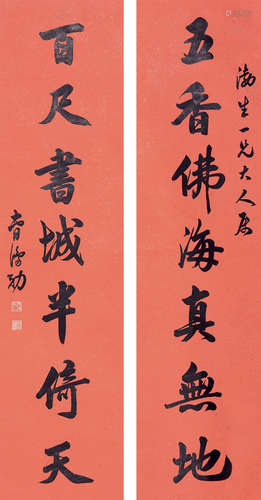 渤生一兄大人属
五香佛海真無地
百尺書城半倚天
曹鴻勛